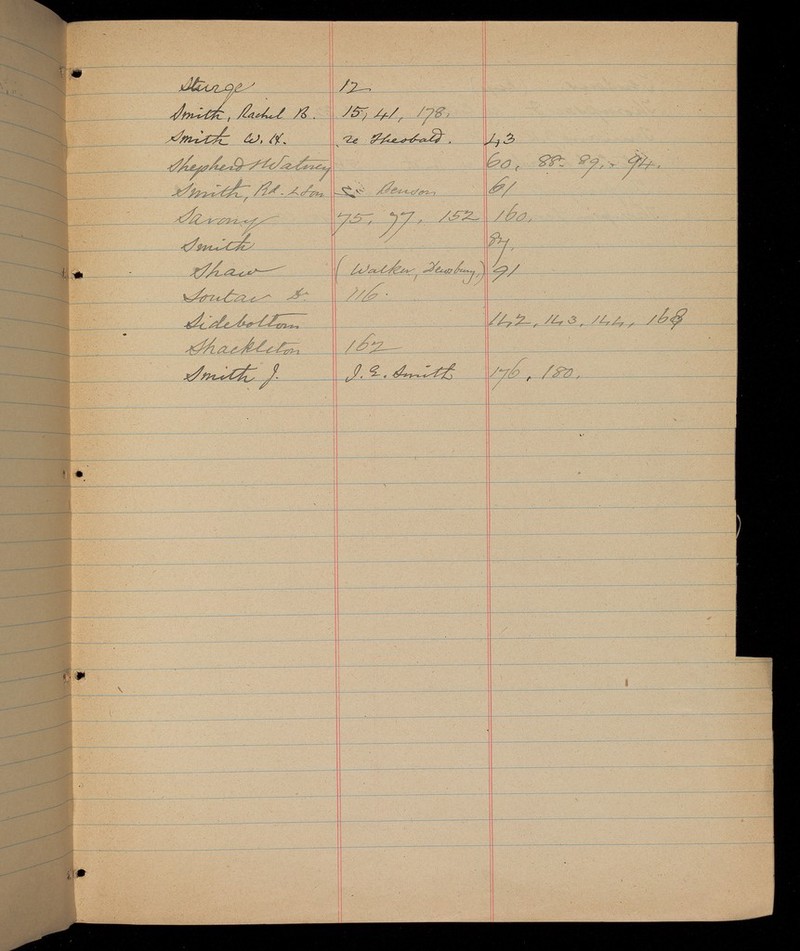 Sturge 12
Smith, Rachel B. 15, 41, 178.
Smith W. H. re Theobald. 43
Shepherd & Watney 60, 88. 89, 94.
Smith, Rd. & Son Denson 61
Savory 75, 77, 152 160.
Smith 87.
Shaw (Walker, Dewsbury,) 91
Soutar Dr. 116.
Sidebottom 142, 143, 144, 168
Shackleton 162
Smith J. J. E. Smith 176, 180.